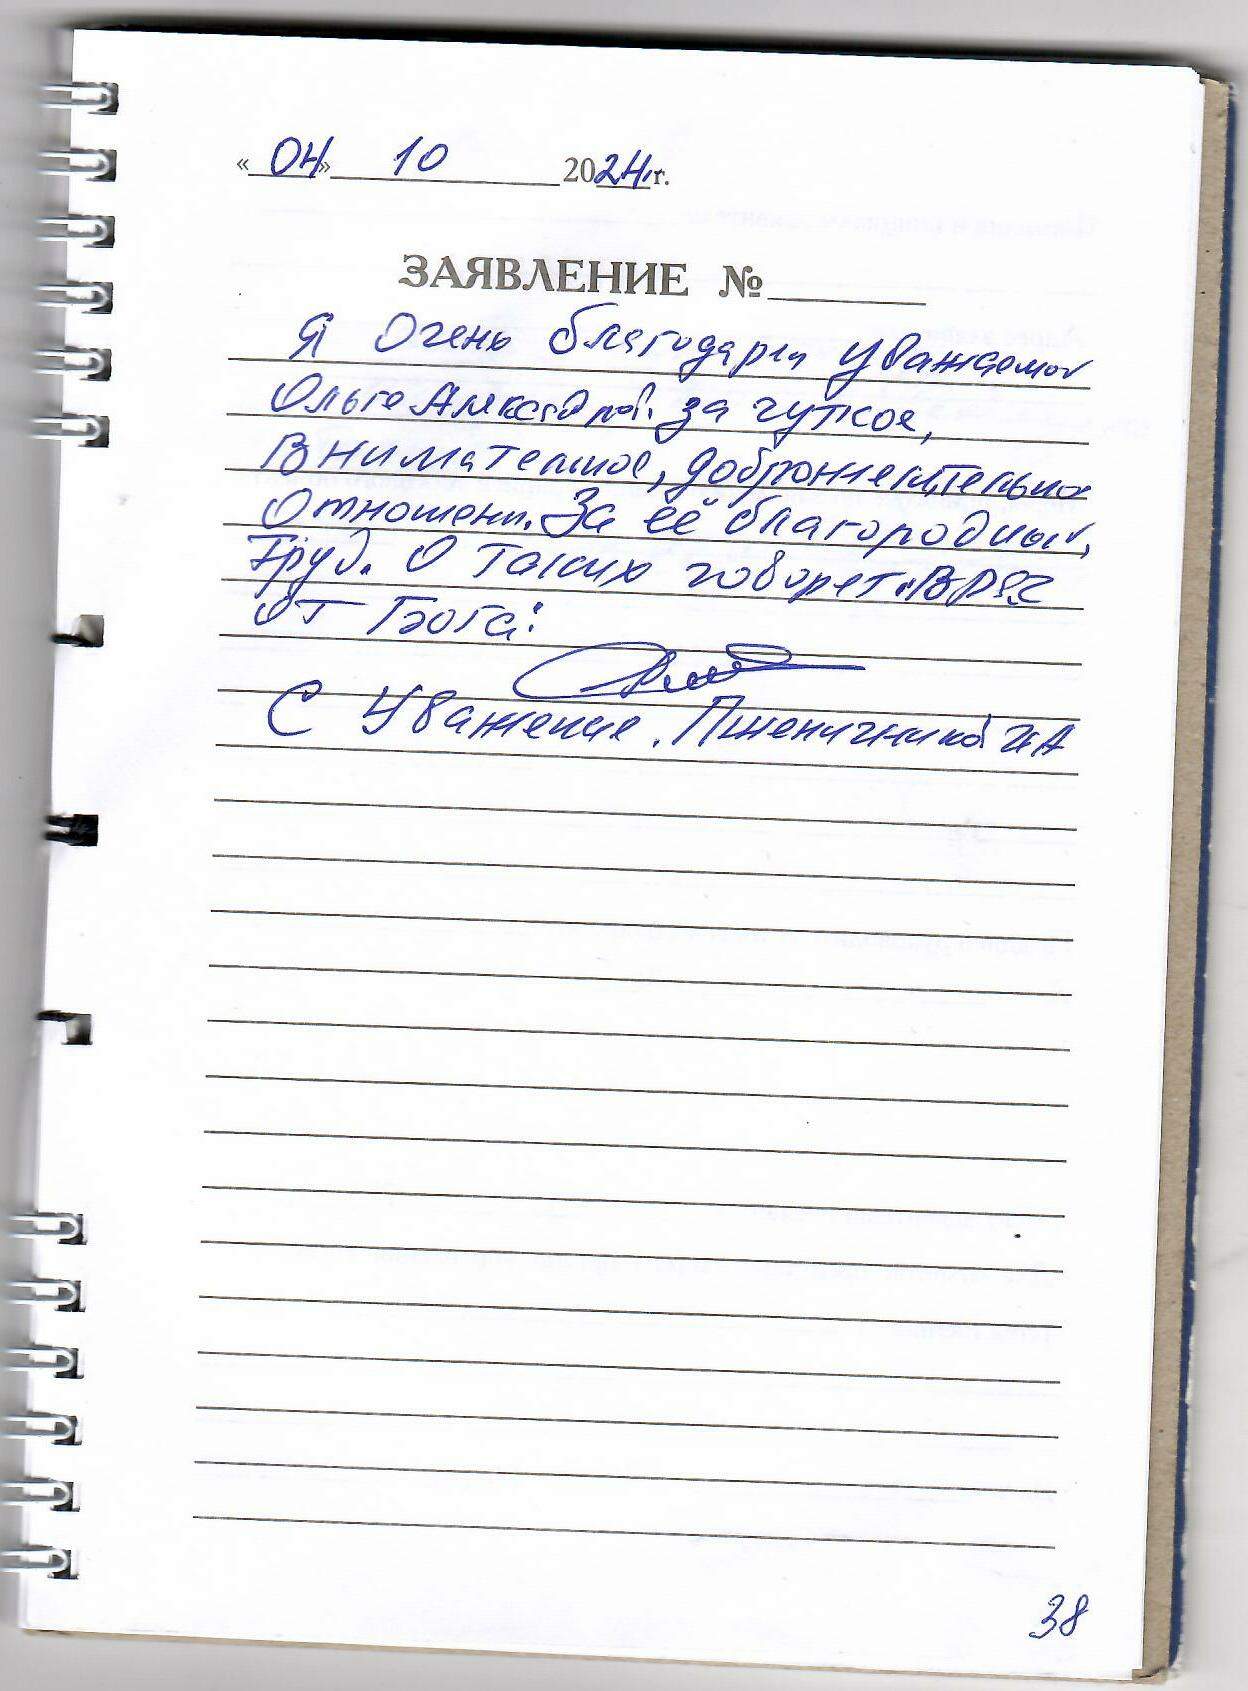 «04» 10 2024 г.
ЗАЯВЛЕНИЕ №
Я Очень благодарна уважаемой
Ольге Александров. за чуткое,
Внимательное, доброжелательное
Отношени. За её благородный
труд. О таких говорет „Врач
от Бога"
С Уважение. Пшеничников НА
38